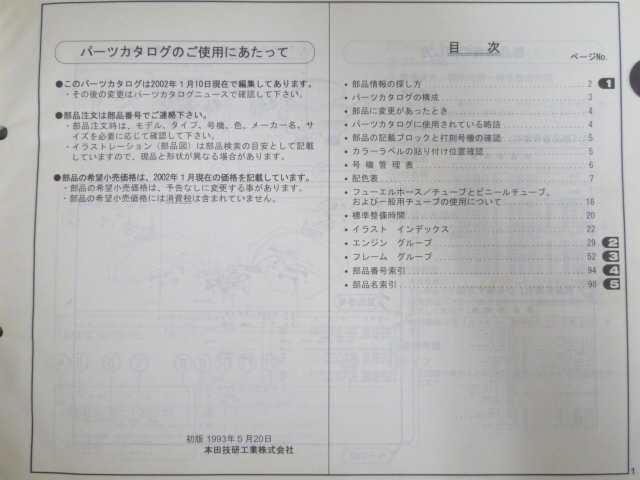 パーツカタログのご使用にあたって
●このパーツカタログは2002年1月10日現在で編集してあります。
・その後の変更はパーツカタログニュースで確認して下さい。
●部品注文は部品番号でご連絡下さい。
・部品注文時は、モデル、タイプ、号機、色、メーカー名、サ
イズを必要に応じて確認して下さい。
・イラストレーション(部品図)は部品検索の目安として記載
していますので、現品と形状が異なる場合があります。
●部品の希望小売価格は、2002年1月現在の価格を記載しています。
・部品の希望小売価格は、予告なしに変更する事があります。
・部品の希望小売価格には消費税は含まれていません。
初版 1993年5月20日
本田技研工業株式会社
目 次
ページNo.
• 部品情報の探し方 2 1
• パーツカタログの構成 3
• 部品に変更があったとき 4
• パーツカタログに使用されている略語 4
• 部品の記載ブロックと打刻号機の確認 5
• カラーラベルの貼り付け位置確認 5
• 号機管理表 6
• 配色表 7
• フューエルホース/チューブとビニールチューブ、
および一般用チューブの使用について 16
• 標準整備時間 20
• イラスト インデックス 22
• エンジン グループ 29 2
• フレーム グループ 52 3
• 部品番号索引 94 4
• 部品名索引 98 5
1